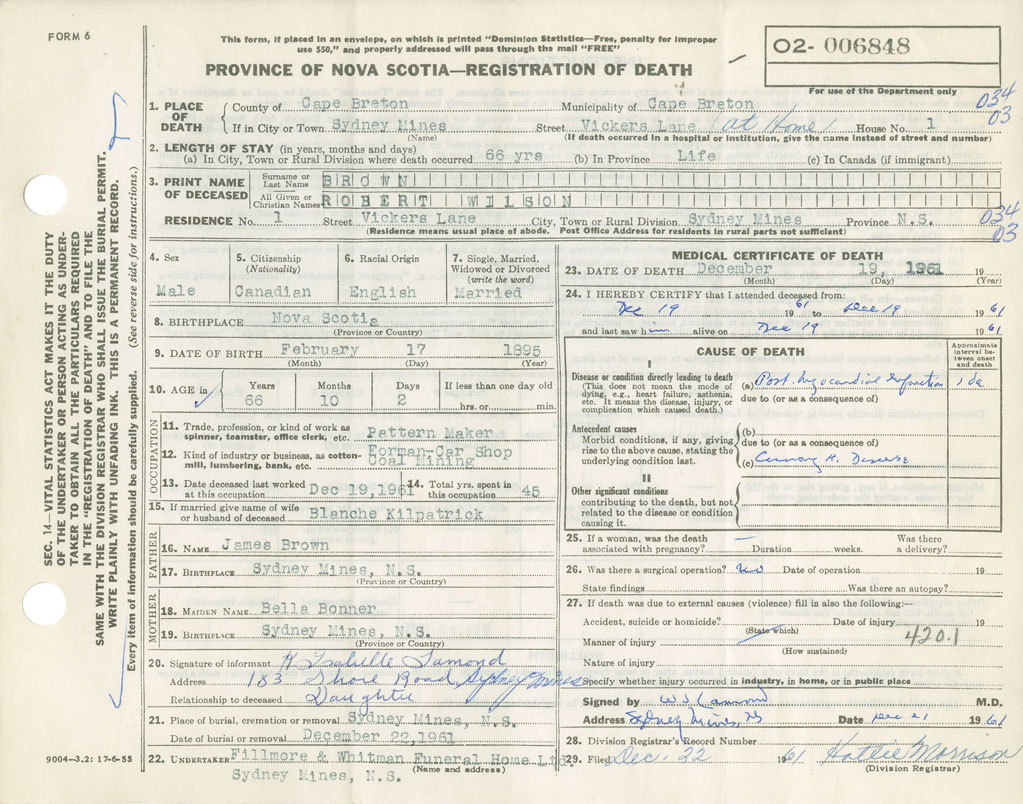 FORM 6
This form, if placed in an envelope, on which is printed "Dominion Statistics—Free, penalty for improper
use $50," and properly addressed will pass through the mail "FREE"
PROVINCE OF NOVA SCOTIA—REGISTRATION OF DEATH
02- 006848
For use of the Department only
034
03
1. PLACE OF DEATH County of Cape Breton Municipality of Cape Breton
If in City or Town Sydney Mines Street Vickers Lane (at Home) House No. 1
(Name) (If death occurred in a hospital or institution, give the name instead of street and number)
2. LENGTH OF STAY (in years, months and days)
(a) In City, Town or Rural Division where death occurred 66 yrs (b) In Province Life (c) In Canada (if immigrant)
3. PRINT NAME OF DECEASED Surname or Last Name BROWN
All Given or Christian Names ROBERT WILSON
RESIDENCE No. 1 Street Vickers Lane City, Town or Rural Division Sydney Mines Province N.S.
(Residence means usual place of abode. Post Office Address for residents in rural parts not sufficient)
034
03
4. Sex 5. Citizenship (Nationality) 6. Racial Origin 7. Single, Married, Widowed or Divorced (write the word)
Male Canadian English Married
8. BIRTHPLACE Nova Scotia
(Province or Country)
9. DATE OF BIRTH February 17 1895
(Month) (Day) (Year)
10. AGE in Years Months Days If less than one day old
66 10 2 hrs. or min.
OCCUPATION
11. Trade, profession, or kind of work as spinner, teamster, office clerk, etc. Pattern Maker
12. Kind of industry or business, as cotton-mill, lumbering, bank, etc. Forman-Car Shop
Coal Mining
13. Date deceased last worked at this occupation Dec 19,1961 14. Total yrs. spent in this occupation 45
15. If married give name of wife or husband of deceased Blanche Kilpatrick
FATHER
16. NAME James Brown
17. BIRTHPLACE Sydney Mines, N.S.
(Province or Country)
MOTHER
18. MAIDEN NAME Bella Bonner
19. BIRTHPLACE Sydney Mines, N.S.
(Province or Country)
20. Signature of informant H Isabelle Lamond
Address 183 Shore Road, Sydney Mines
Relationship to deceased Daughter
21. Place of burial, cremation or removal Sydney Mines, N.S.
Date of burial or removal December 22,1961
22. UNDERTAKER Fillmore & Whitman Funeral Home Ltd.
(Name and address)
Sydney Mines, N.S.
9004—3.2: 17-6-55
MEDICAL CERTIFICATE OF DEATH
23. DATE OF DEATH December 19, 1961 19
(Month) (Day) (Year)
24. I HEREBY CERTIFY that I attended deceased from:
Dec 19 1961 to Dec 19 1961
and last saw him alive on Dec 19 1961.
CAUSE OF DEATH
Approximate interval between onset and death
I
Disease or condition directly leading to death (a) Post. Myocardial Infarction 1 da
(This does not mean the mode of dying, e.g., heart failure, asthenia, etc. It means the disease, injury, or complication which caused death.)
due to (or as a consequence of)
Antecedent causes (b)
Morbid conditions, if any, giving rise to the above cause, stating the underlying condition last.
due to (or as a consequence of)
(c) Coronary H. Disease
II
Other significant conditions
contributing to the death, but not related to the disease or condition causing it.
25. If a woman, was the death associated with pregnancy? — Duration weeks. Was there a delivery?
26. Was there a surgical operation? No Date of operation 19
State findings Was there an autopsy?
27. If death was due to external causes (violence) fill in also the following:—
Accident, suicide or homicide? Date of injury 19
(State which)
420.1
Manner of injury
(How sustained)
Nature of injury
Specify whether injury occurred in industry, in home, or in public place
Signed by M.D.
Address Sydney Mines, NS Date Dec 21 1961
28. Division Registrar's Record Number
29. Filed Dec. 22 1961 Hattie Morrison
(Division Registrar)
SEC. 14—VITAL STATISTICS ACT MAKES IT THE DUTY
OF THE UNDERTAKER OR PERSON ACTING AS UNDER-
TAKER TO OBTAIN ALL THE PARTICULARS REQUIRED
IN THE "REGISTRATION OF DEATH" AND TO FILE THE
SAME WITH THE DIVISION REGISTRAR WHO SHALL ISSUE THE BURIAL PERMIT.
WRITE PLAINLY WITH UNFADING INK. THIS IS A PERMANENT RECORD.
Every item of information should be carefully supplied. (See reverse side for instructions.)